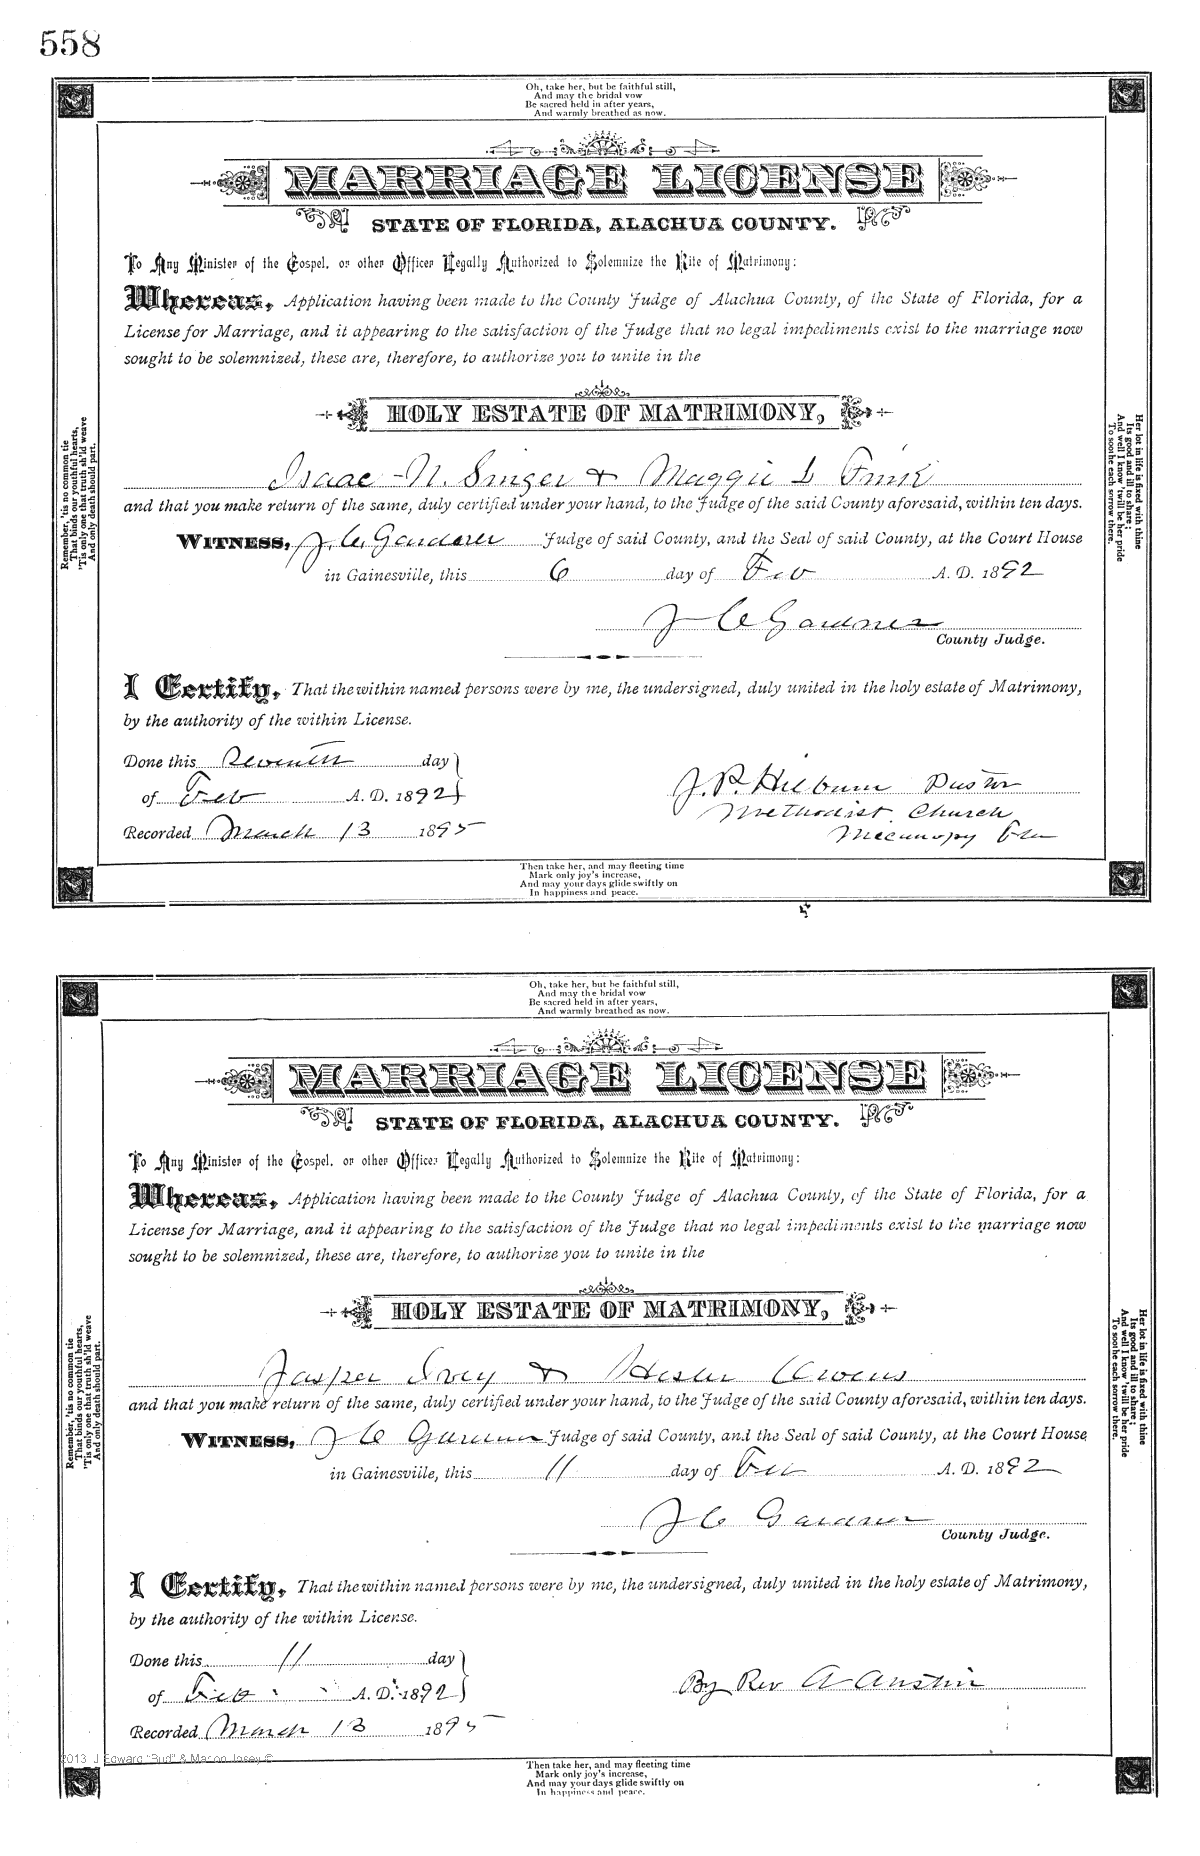 558
Oh, take her, but be faithful still,
And may the bridal vow
Be sacred held in after years,
And warmly breathed as now.
MARRIAGE LICENSE
STATE OF FLORIDA, ALACHUA COUNTY.
To Any Minister of the Gospel, or other Officer Legally Authorized to Solemnize the Rite of Matrimony:
Whereas, Application having been made to the County Judge of Alachua County, of the State of Florida, for a
License for Marriage, and it appearing to the satisfaction of the Judge that no legal impediments exist to the marriage now
sought to be solemnized, these are, therefore, to authorize you to unite in the
HOLY ESTATE OF MATRIMONY,
Isaac N. Singer & Maggie L Fink
and that you make return of the same, duly certified under your hand, to the Judge of the said County aforesaid, within ten days.
WITNESS, J. C. Gardner Judge of said County, and the Seal of said County, at the Court House
in Gainesville, this 6 day of Feb A. D. 1892
J C Gardner
County Judge.
I Certify, That the within named persons were by me, the undersigned, duly united in the holy estate of Matrimony,
by the authority of the within License.
Done this Seventh day
of Feb A. D. 1892
Recorded March 13 1895
J. P. Hilburn Pastor
Methodist Church
Mecanopy Fla
Remember, 'tis no common tie
That binds our youthful hearts,
'Tis only one that truth sh'ld weave
And only death should part.
Her lot in life is fixed with thine
Its good and ill to share;
And well I know 'twill be her pride
To soothe each sorrow there.
Then take her, and may fleeting time
Mark only joy's increase,
And may your days glide swiftly on
In happiness and peace.
Oh, take her, but be faithful still,
And may the bridal vow
Be sacred held in after years,
And warmly breathed as now.
MARRIAGE LICENSE
STATE OF FLORIDA, ALACHUA COUNTY.
To Any Minister of the Gospel, or other Officer Legally Authorized to Solemnize the Rite of Matrimony:
Whereas, Application having been made to the County Judge of Alachua County, of the State of Florida, for a
License for Marriage, and it appearing to the satisfaction of the Judge that no legal impediments exist to the marriage now
sought to be solemnized, these are, therefore, to authorize you to unite in the
HOLY ESTATE OF MATRIMONY,
Jasper Ivey & Hester Owens
and that you make return of the same, duly certified under your hand, to the Judge of the said County aforesaid, within ten days.
WITNESS, J C Gardner Judge of said County, and the Seal of said County, at the Court House
in Gainesville, this 11 day of Feb A. D. 1892
J C Gardner
County Judge.
I Certify, That the within named persons were by me, the undersigned, duly united in the holy estate of Matrimony,
by the authority of the within License.
Done this 11 day
of Feb A. D. 1892
Recorded March 13 1895
By Rev A Austin
Remember, 'tis no common tie
That binds our youthful hearts,
'Tis only one that truth sh'ld weave
And only death should part.
Her lot in life is fixed with thine
Its good and ill to share;
And well I know 'twill be her pride
To soothe each sorrow there.
2013 J Edward "Bud" & Marion Josey ©
Then take her, and may fleeting time
Mark only joy's increase,
And may your days glide swiftly on
In happiness and peace.